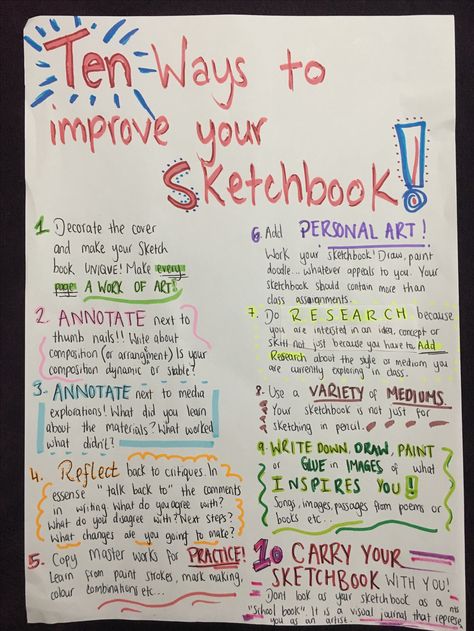 Ten Ways to
improve your
Sketchbook!
1. Decorate the cover
and make your sketch
book UNIQUE! Make every
page A WORK OF ART!
2. ANNOTATE next to
thumb nails!! Write about
composition (or arrangment) Is your
composition dynamic or stable?
3. ANNOTATE next to media
explorations! What did you learn
about the materials? What worked
what didn't?
4. Reflect back to critiques. In
essense "talk back to" the comments
in writing. What do you agree with?
What do you disagree with? Next steps?
What changes are you going to make?
5. Copy Master works for PRACTICE!
Learn from paint strokes, mark making,
colour combinations etc...
6. Add PERSONAL ART!
Work your sketchbook! Draw, paint
doodle... whatever appeals to you. Your
sketchbook should contain more than
class assignments.
7. Do RESEARCH because
you are intersted in an idea, concept or
skill not just because you have to. Add
Research about the style or medium you
are currently exploring in class.
8. Use a VARIETY of MEDIUMS.
Your sketchbook is not just for
sketching in pencil.
9. WRITE DOWN, DRAW, PAINT
or GLUE in IMAGES of what
INSPIRES YOU!
Songs, images, passages from poems or
books etc...
10 CARRY YOUR
SKETCHBOOK WITH YOU!
Dont look as your sketchbook as a
"school book". It is a visual journal that
you as an artist.